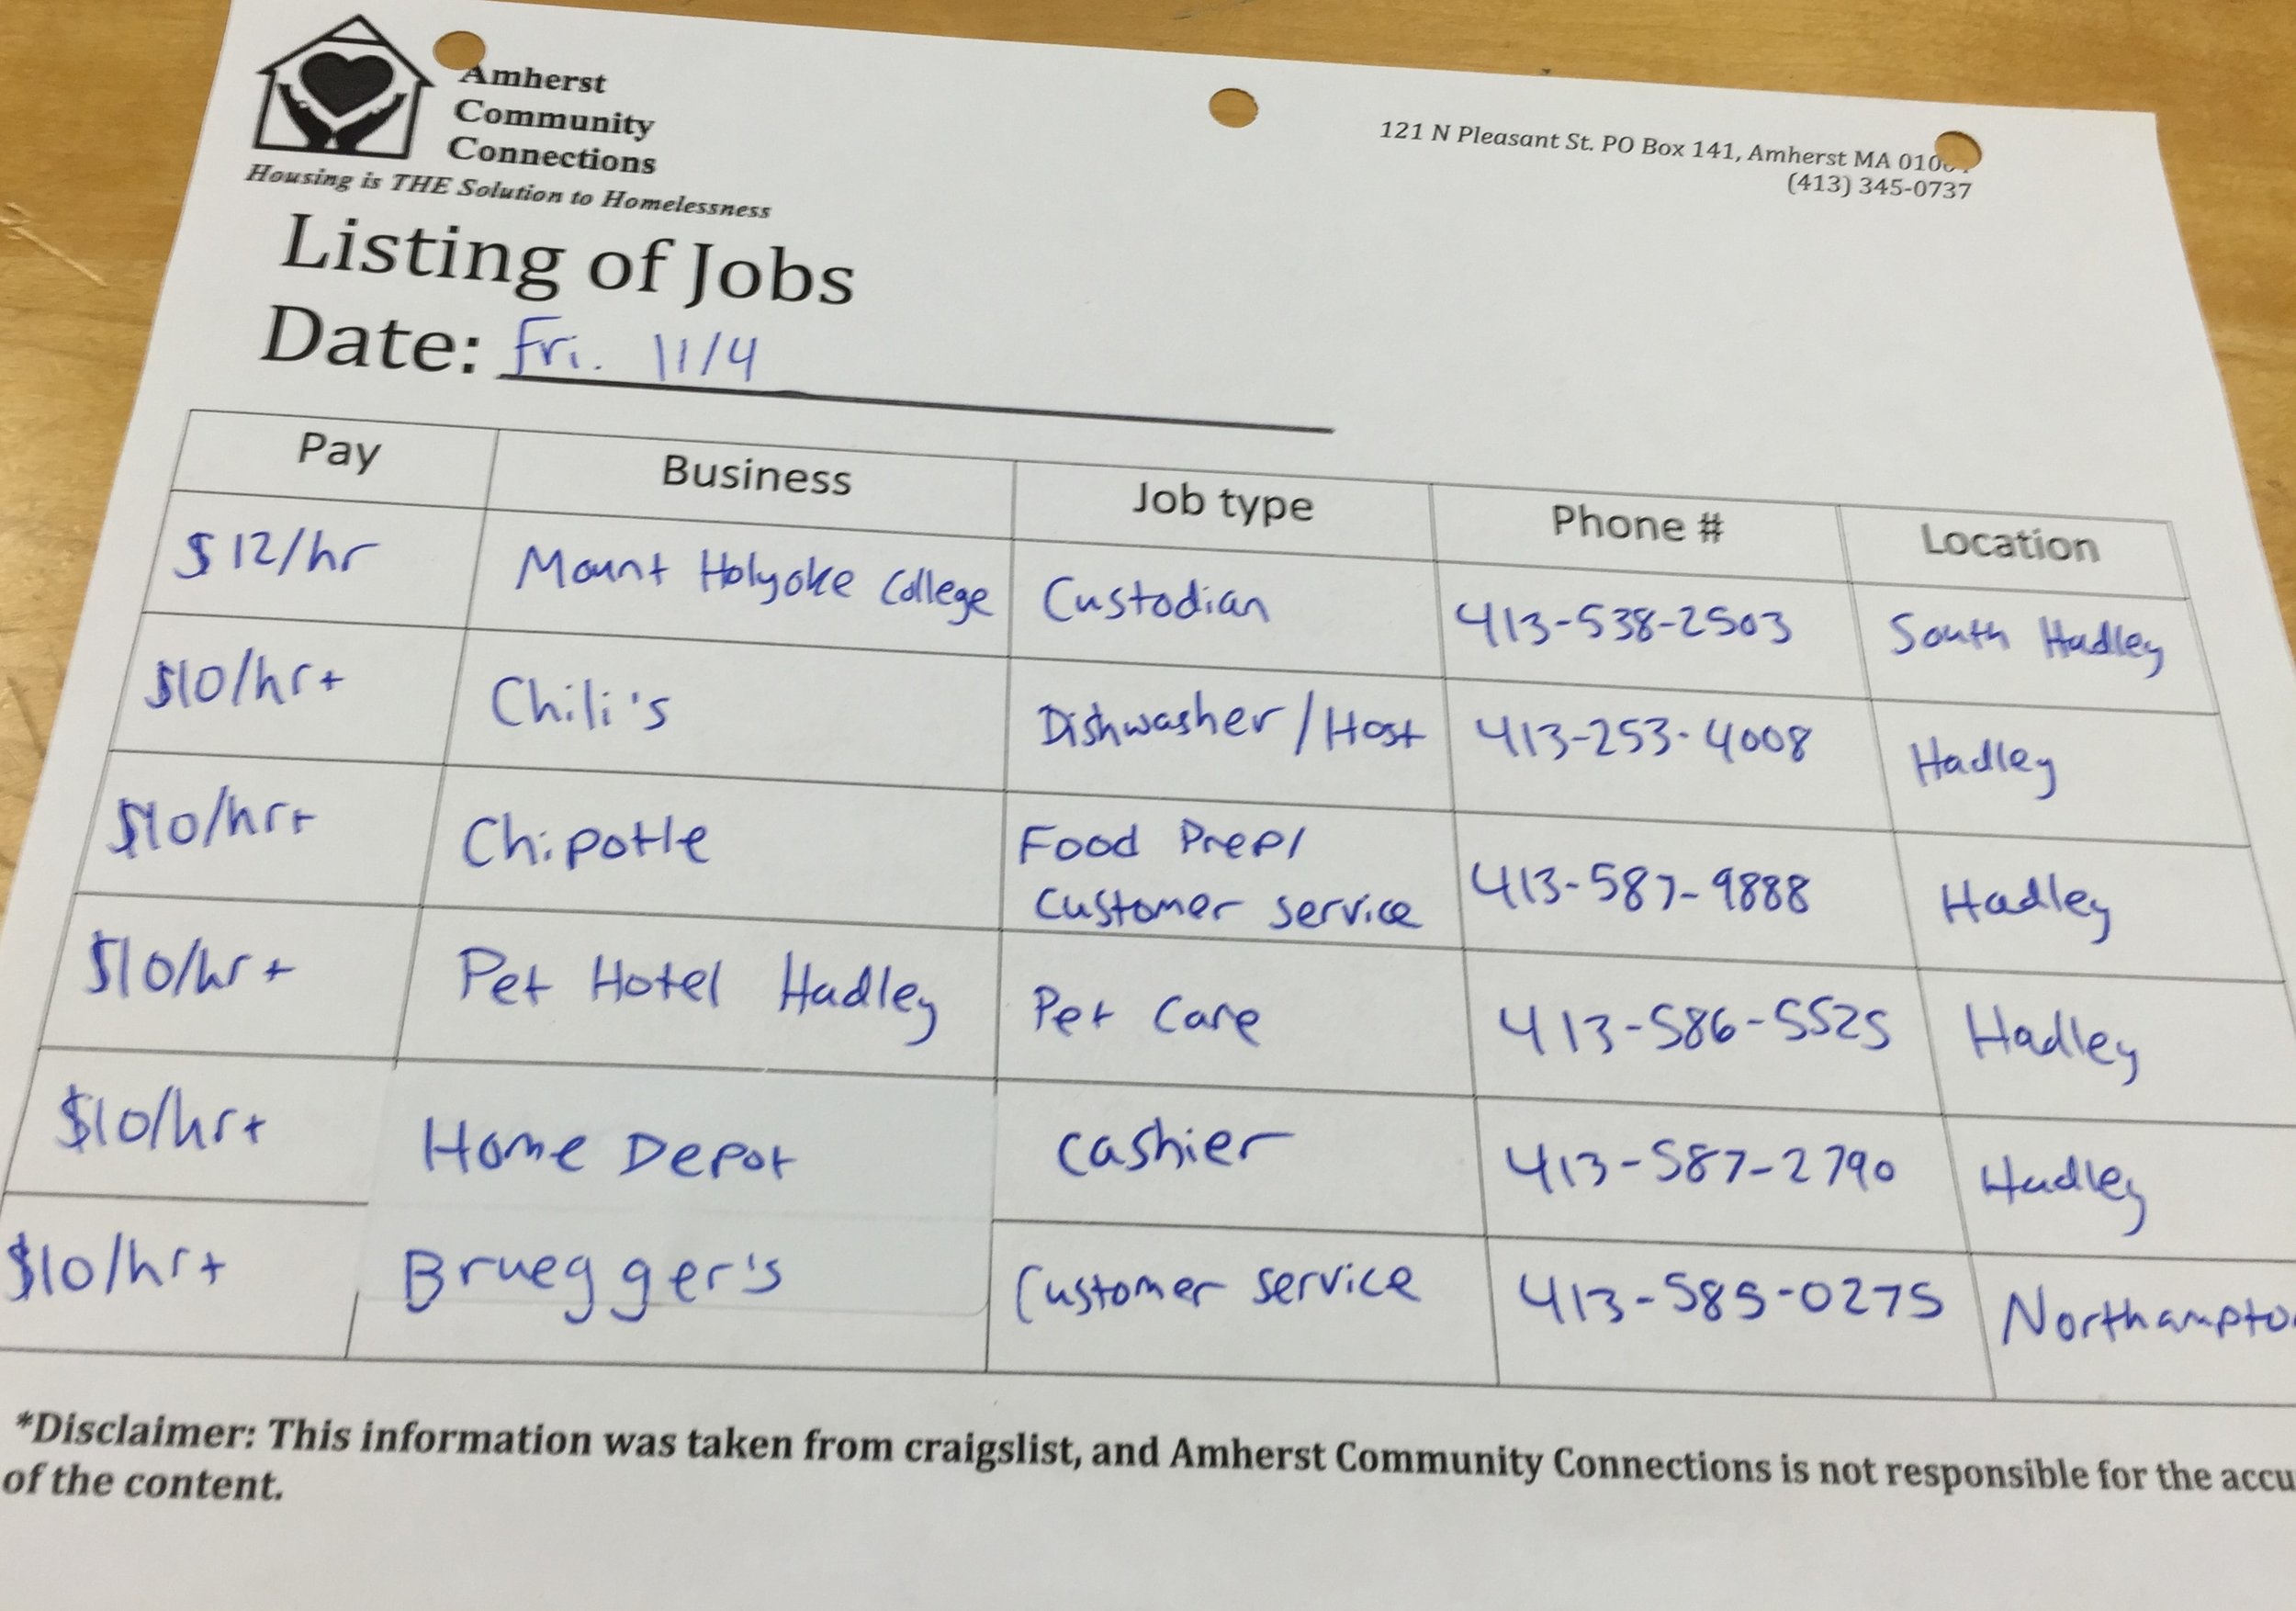 Amherst
Community
Connections
Housing is THE Solution to Homelessness
121 N Pleasant St. PO Box 141, Amherst MA
(413) 345-0737
Listing of Jobs
Date: Fri. 11/4
Pay Business Job type Phone # Location
$12/hr Mount Holyoke College Custodian 413-538-2503 South Hadley
$10/hr+ Chili's Dishwasher/Host 413-253-4008 Hadley
$10/hr+ Chipotle Food Prep/ 413-587-9888 Hadley
Customer service
$10/hr+ Pet Hotel Hadley Pet Care 413-586-5525 Hadley
$10/hr+ Home Depot Cashier 413-587-2790 Hadley
$10/hr+ Bruegger's Customer service 413-585-0275 Northampto
*Disclaimer: This information was taken from craigslist, and Amherst Community Connections is not responsible for the accu
of the content.